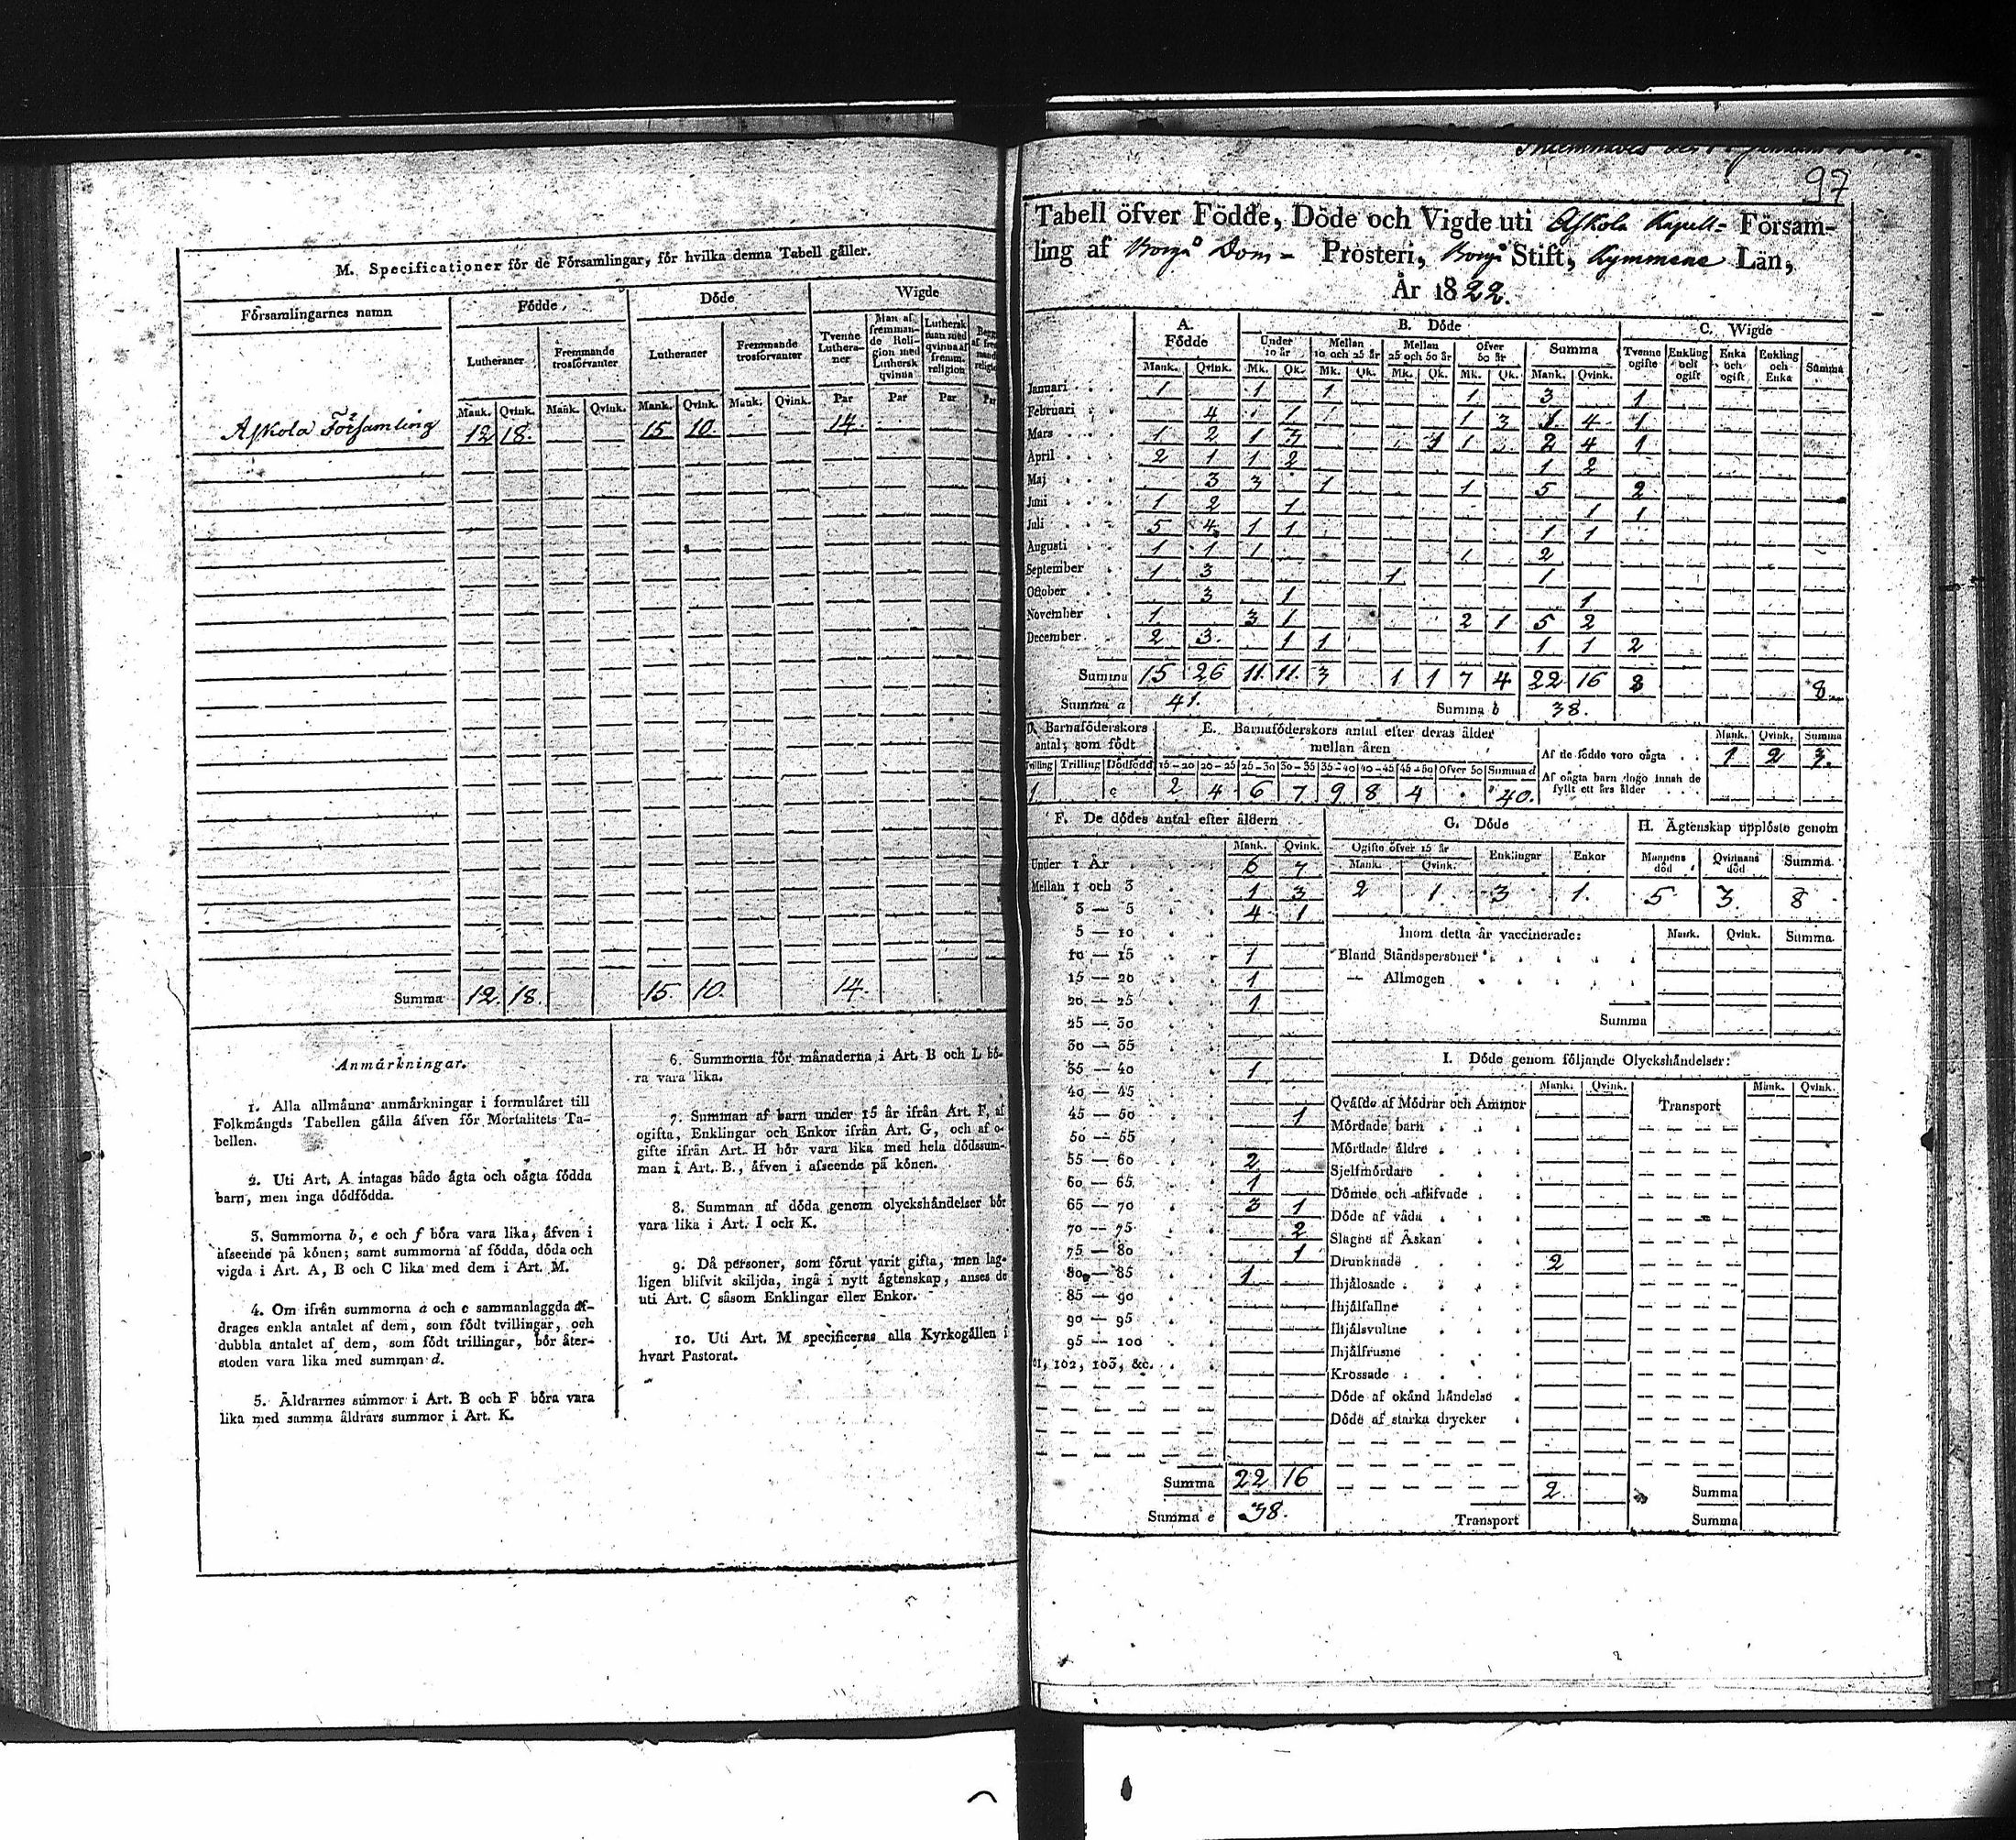 M. Specificationer för de Församlingar, för hvilka denna Tabell gäller.
Församlingarnes namn Födde Döde Wigde
Lutheraner Fremmande trosförvanter Lutheraner Fremmande trosförvanter Tvenne Lutheraner Man af fremmande Religion med Luthersk qvinna Luthersk man med qvinna af fremm. religion
Mank. Qvink. Mank. Qvink. Mank. Qvink. Mank. Qvink. Par Par Par
Askola Församling 12 18. 15 10. 14
Summa 12. 18. 15. 10. 14.
Anmärkningar.
1. Alla allmänna anmärkningar i formuläret till
Folkmängds Tabellen gälla äfven för Mortalitets Ta-
bellen.
2. Uti Art. A intagas både ägta och oägta födda
barn, men inga dödfödda.
3. Summorna b, e och f böra vara lika, äfven i
afseende på könen; samt summorna af födda, döda och
vigda i Art. A, B och C lika med dem i Art. M.
4. Om ifrån summorna a och c sammanlaggda af-
drages enkla antalet af dem, som födt tvillingar, och
dubbla antalet af dem, som födt trillingar, bör åter-
stoden vara lika med summan d.
5. Äldrarnes summor i Art. B och F böra vara
lika med samma äldrars summor i Art. K.
6. Summorna för månaderna i Art. B och L bö-
ra vara lika.
7. Summan af barn under 15 år ifrån Art. F, af
ogifta, Enklingar och Enkor ifrån Art. G, och af o-
gifte ifrån Art. H bör vara lika med hela dödssum-
man i Art. B., äfven i afseende på könen.
8. Summan af döda genom olyckshändelser bör
vara lika i Art. I och K.
9. Då personer, som förut varit gifta, men lag-
ligen blifvit skiljda, ingå i nytt ägtenskap, anses de
uti Art. C såsom Enklingar eller Enkor.
10. Uti Art. M specificeras alla Kyrkogällen i
hvart Pastorat.
97
Tabell öfver Födde, Döde och Vigde uti Askola Kapell- Församling
ling af Borgå Dom- Prosteri, Borgå Stift, Kymmene Län,
År 1822.
A. Födde B. Döde C. Wigde
Under 10 år Mellan 10 och 25 år Mellan 25 och 50 år Öfver 50 år Summa Tvenne ogifte Enkling och ogift Enka och ogift Enkling och Enka Summa
Mank. Qvink. Mk. Qk. Mk. Qk. Mk. Qk. Mk. Qk. Mank. Qvink.
Januari 1 1 1 1 3 1
Februari 4 1 1 3 1 4 1
Mars 1 2 1 3 1 1 2 4 1
April 2 1 1 2 1 2
Maj 3 3 1 1 5 2
Juni 1 2 1 1 1
Juli 5 4 1 1 1 1
Augusti 1 1 1 1 2
September 1 3 1 1
October 3 1 1
November 1 3 1 2 1 5 2
December 2 3 1 1 1 1 2
Summa 15 26 11 11 3 1 1 7 4 22 16 8 8
Summa a 41. Summa b 38.
D. Barnaföderskors antal, som födt
E. Barnaföderskors antal efter deras ålder mellan åren
Tvilling Trilling Dödfödd 15-20 20-25 25-30 30-35 35-40 40-45 45-50 Öfver 50 Summa d
1 c 2 4 6 7 9 8 4 40.
Mank. Qvink. Summa
Af de födde voro oägta 1 2 3.
Af oägta barn dogo innan de fyllt ett års ålder
F. De dödes antal efter åldern
Mank. Qvink.
Under 1 År 6 7
Mellan 1 och 3 1 3
3 — 5 4 1
5 — 10
10 — 15 1
15 — 20 1
20 — 25 1
25 — 30
30 — 35
35 — 40 1
40 — 45
45 — 50 1
50 — 55
55 — 60 2
60 — 65 1
65 — 70 3 1
70 — 75 2
75 — 80 1
80 — 85 1
85 — 90
90 — 95
95 — 100
101, 102, 103, &c.
Summa 22 16
Summa e 38.
G. Döde
Ogifte öfver 15 år Enklingar Enkor
Mank. Qvink.
2 1. 3 1.
H. Ägtenskap upplöste genom
Mannens död Qvinnans död Summa
5 3. 8
Inom detta år vaccinerade: Mank. Qvink. Summa
Bland Ståndspersoner
— Allmogen
Summa
I. Döde genom följande Olyckshändelser:
Mank. Qvink. Mank. Qvink.
Qväfde af Mödrar och Ammor Transport
Mördade barn
Mördade äldre
Sjelfmördare
Dömde och aflifvade
Döde af våda
Slagne af Åskan
Drunknade 2
Ihjälosade
Ihjälfallne
Ihjälsvultne
Ihjälfrusne
Krossade
Döde af okänd händelse
Döde af starka drycker
2. Summa
Transport Summa